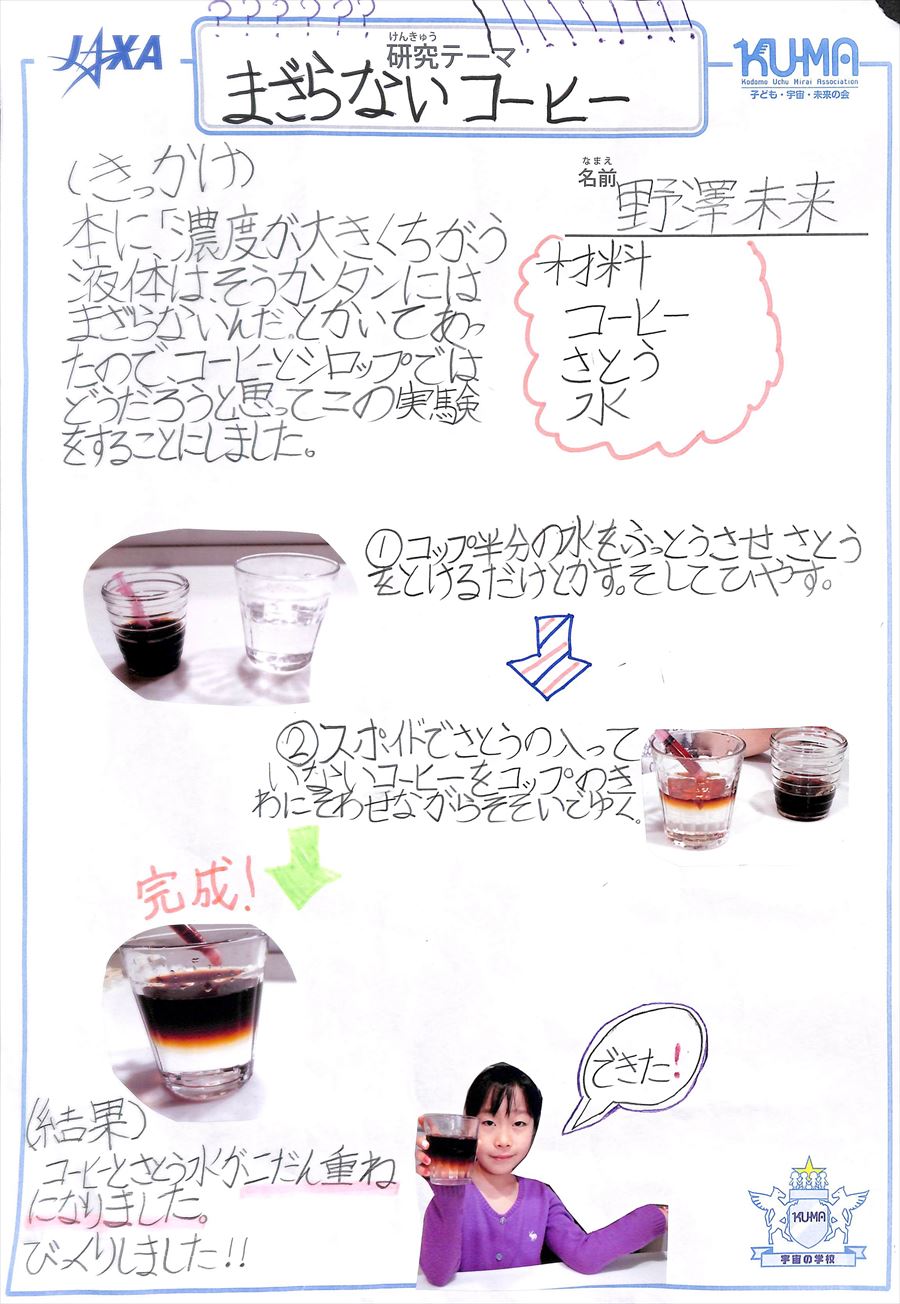 JAXA
けんきゅう
研究テーマ
まざらないコーヒー
KUMA
Kodomo Uchu Mirai Association
子ども・宇宙・未来の会
なまえ
名前
野澤未来
(きっかけ)
本に「濃度が大きくちがう
液体は、そうカンタンには
まざらないんだ。とかいてあっ
たので、コーヒーとシロップでは
どうだろうと思ってこの実験
をすることにしました。
材料
コーヒー
さとう
水
①コップ半分の水をふっとうさせ、さとう
をとけるだけとかす。そしてひやす。
②スポイドでさとうの入って
いないコーヒーをコップのき
わにそわせながらそそいでゆく。
完成!
できた!
(結果)
コーヒーとさとう水が二だん重ね
になりました。
びっくりしました!!
KUMA
宇宙の学校